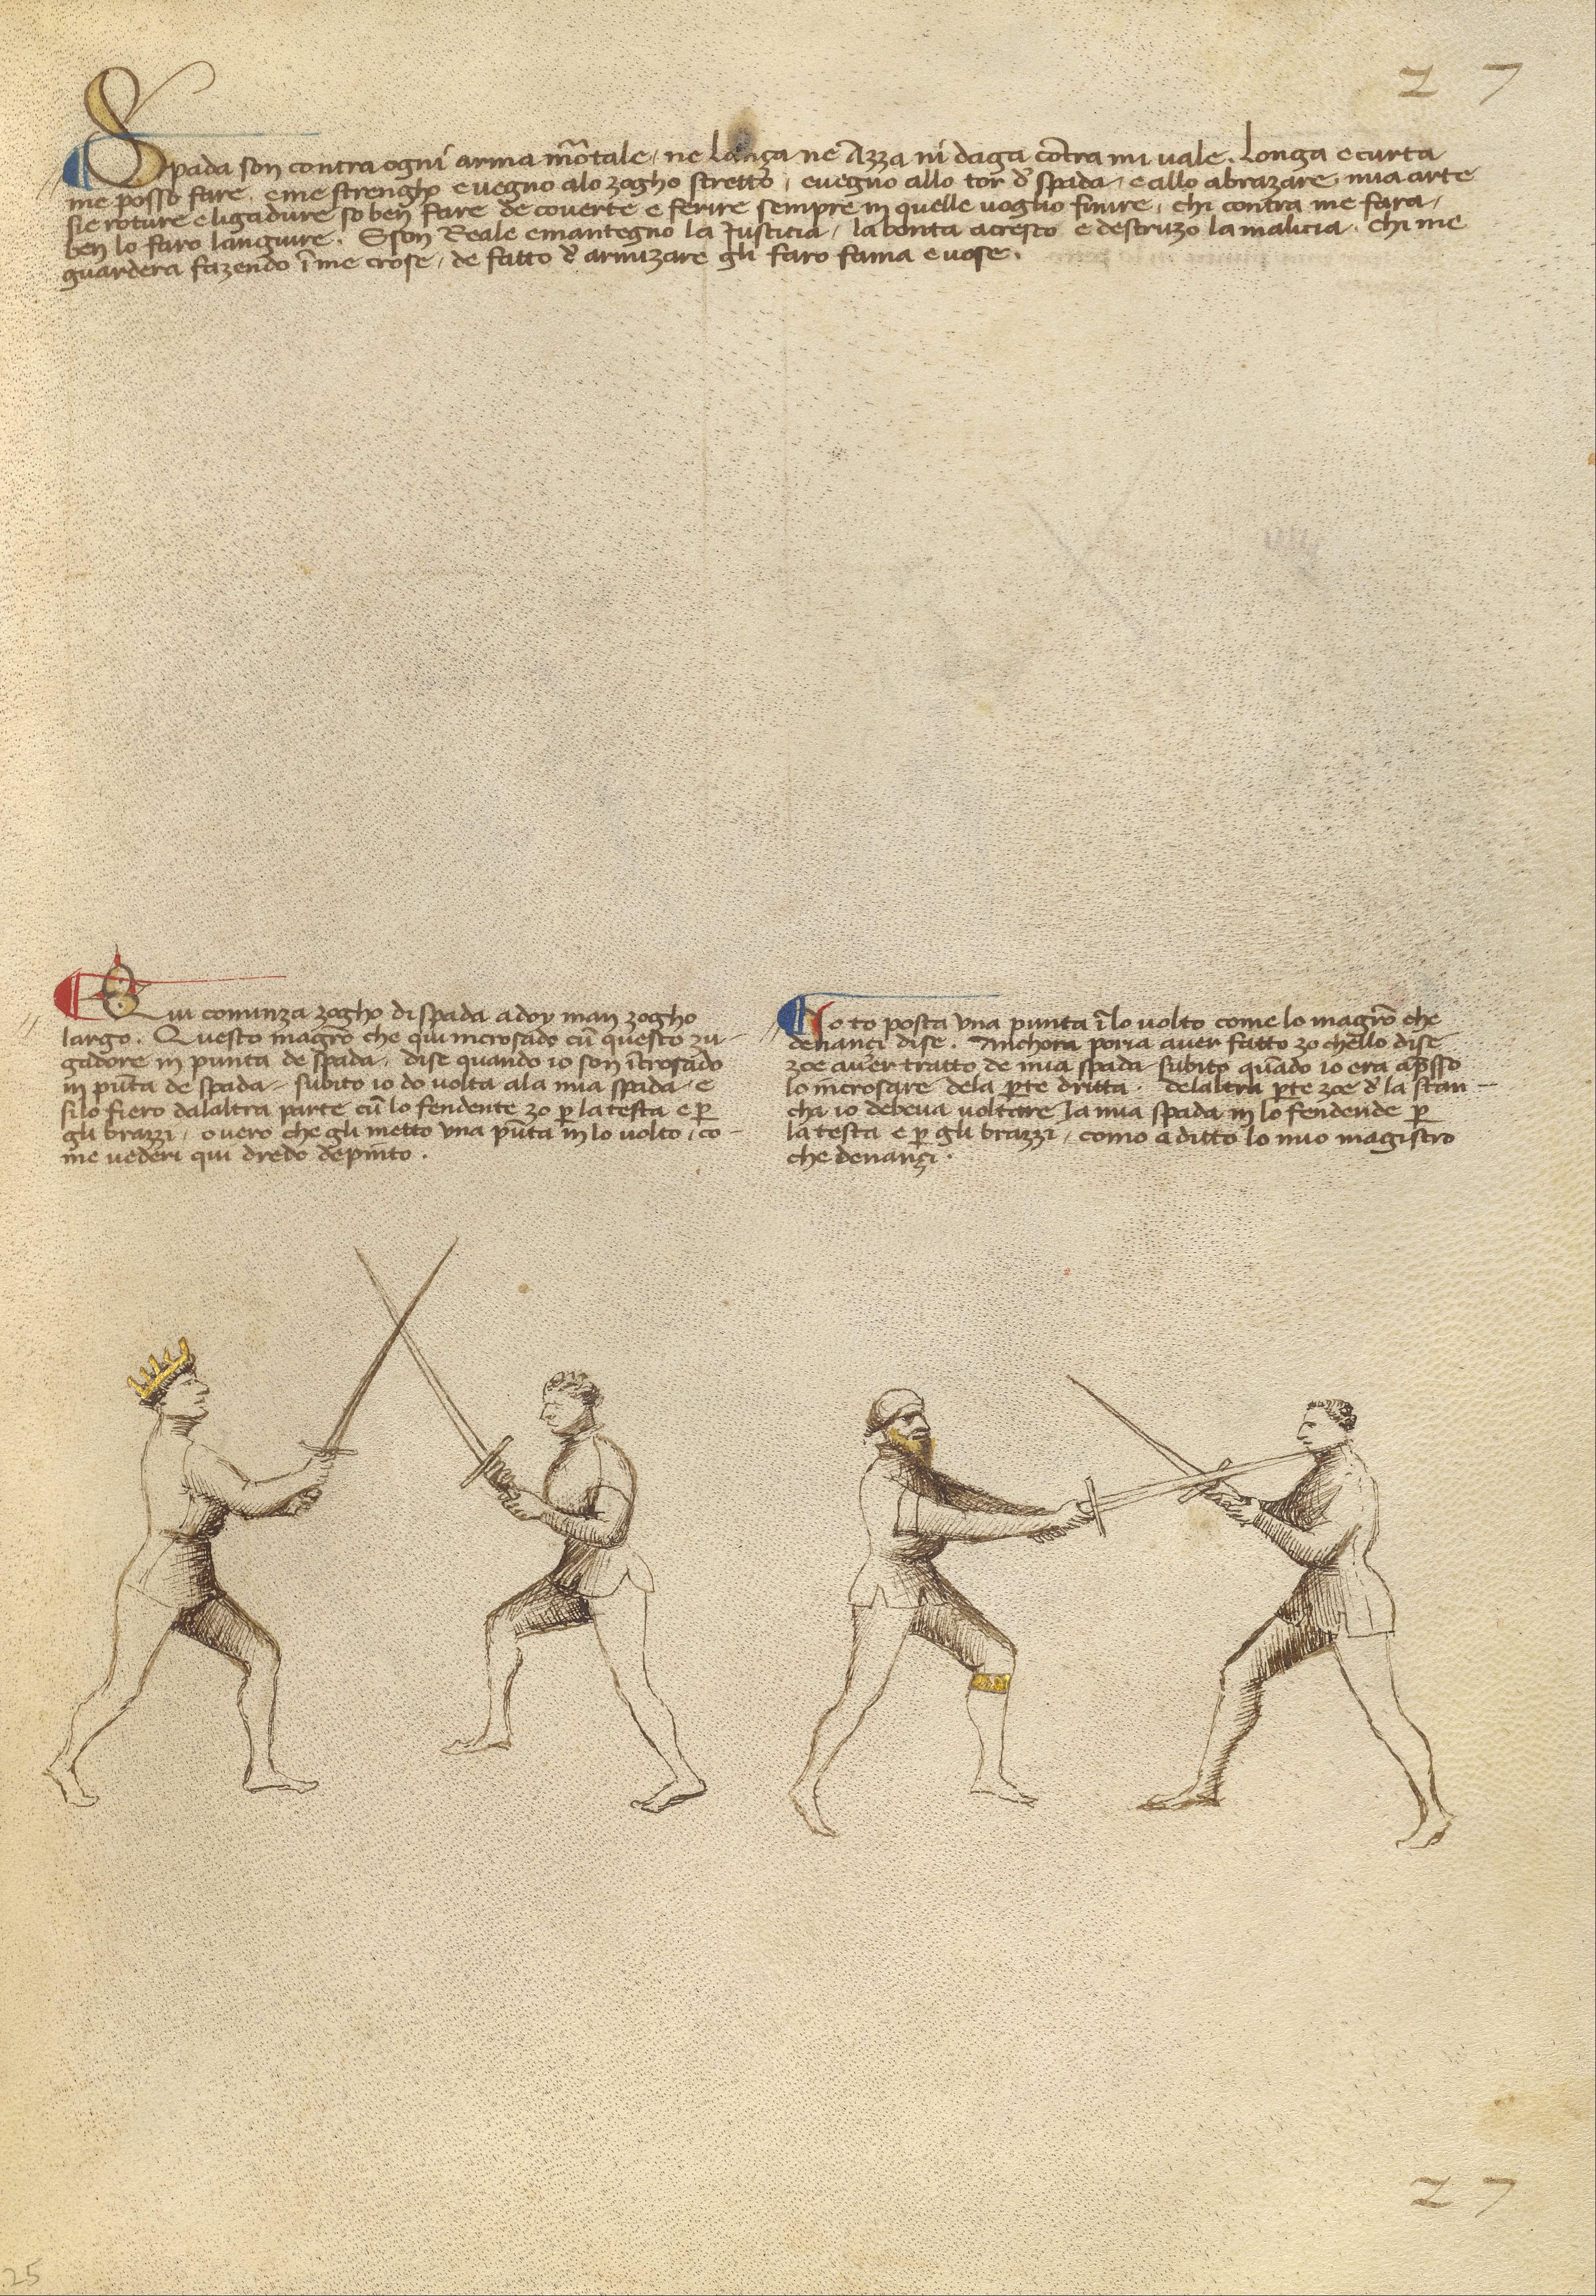 27
Spada son contra ogni arma mõtale, ne lanza ne Azza ni daga cõtra mi vale. Longa e curta
me posso fare, e me strengho e vegno a lo zogho stretto, e vegno allo tor d' spada, e allo abrazare, mia arte
sie roture e ligadure so ben fare de coverte e ferire sempre in quelle voglio finire, chi contra me fara,
ben lo faro languire. E son Reale e mantegno la Justicia, la bonta acresco e destruzo la malicia. Chi me
guardera fazendo ĩ me crose, de fatto d' armizare gli faro fama e vose.
Qui cominza zogho di spada a doy man zogho
largo. Questo magrõ che qui incrosado cũ questo zu-
gadore in punta de spada, dise quando io son ĩcrosado
in pũta de spada, subito io do volta ala mia spada, e
silo fiero dalaltra parte cũ lo fendente zo p̱ la testa e p̱
gli brazzi, overo che gli metto una pũta in lo volto, co-
me vederi qui dredo depinto.
Io to posta una punta ĩ lo volto come lo magrõ che
denanci dise. Anchora poria aver fatto zo chello dise
zoe aver tratto de mia spada subito quãdo io era ap̱sso
lo incrosare dela p̱te dritta. delaltra p̱te zoe d' la stan-
cha io debeva voltare la mia spada in lo fendende p̱
la testa e p̱ gli brazzi, como a ditto lo mio magistro
che denançi.
27
25